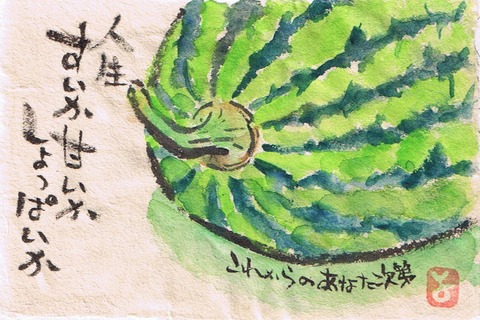 人生
すいか甘いか
しょっぱいか
これからのあなた次第